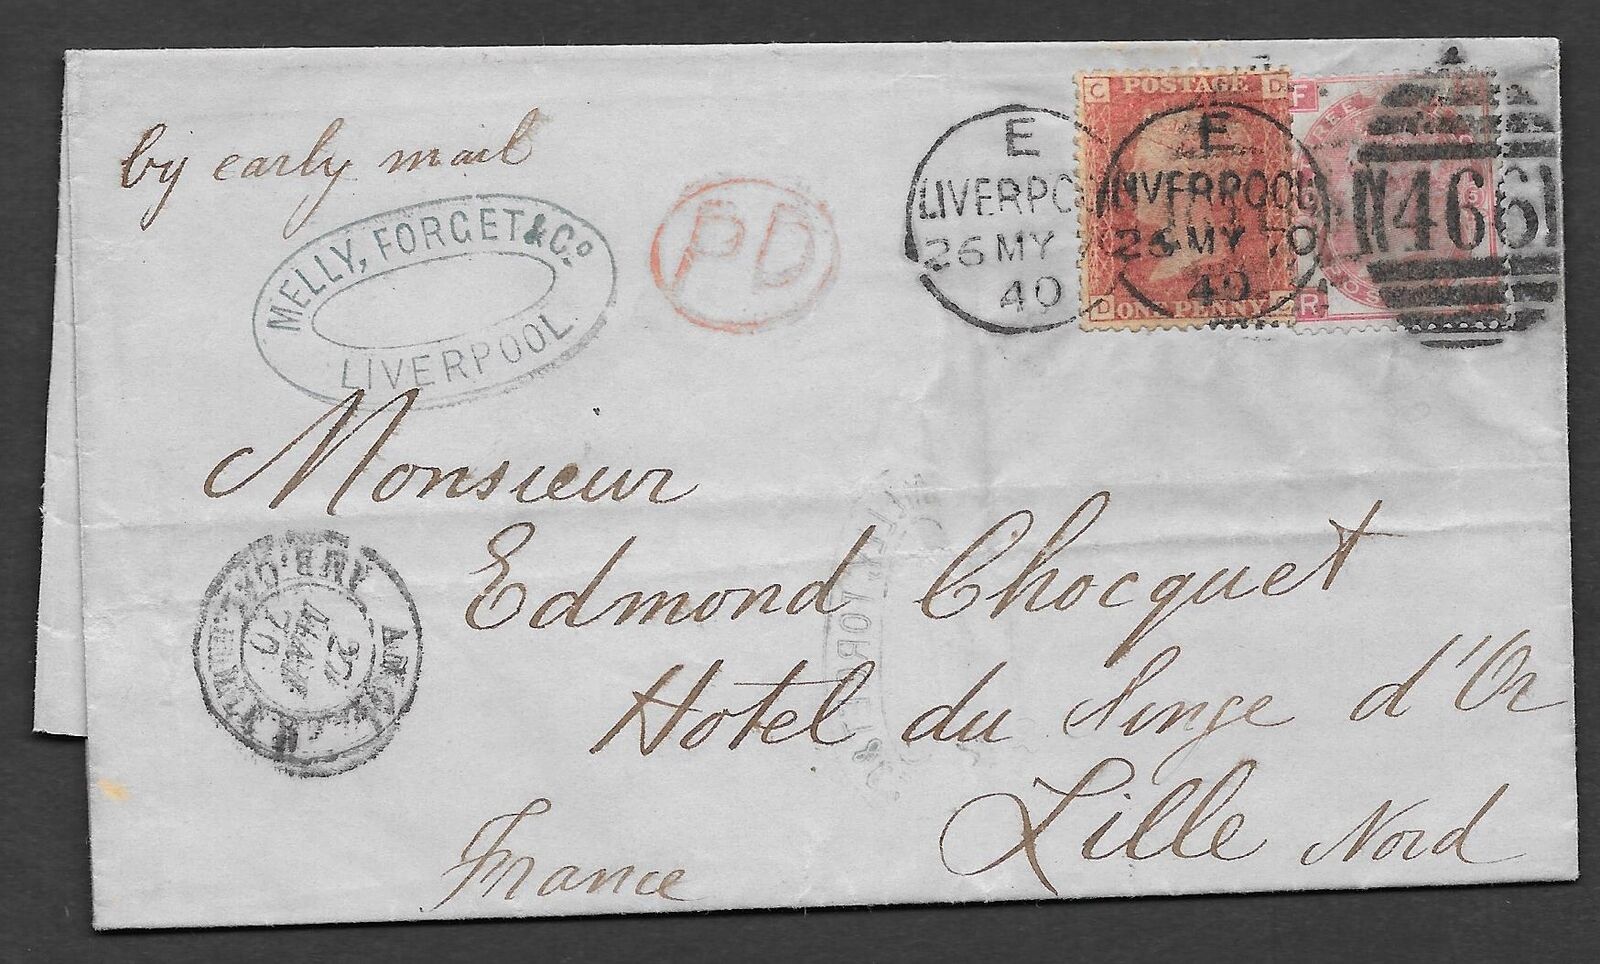 by early mail
MELLY, FORGET & Co.
LIVERPOOL
PD
E
LIVERPO
26 MY 7
40
E
LIVERPOOL
26 MY 70
40
466
C D
POSTAGE
ONE PENNY
D
F
THREE
R
Monsieur
Edmond Chocquet
Hotel du Singe d'Or
Lille Nord
France
ANGL.
AMB. CAL
MAI
70